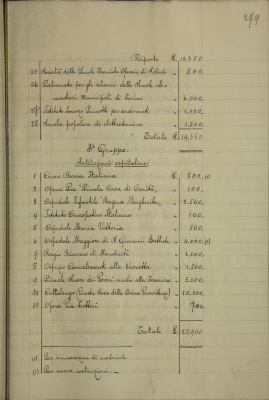 279
Riporto £. 12,350
25 Società delle Scuole Tecniche Operaie di S. Carlo " 800
26 Patronato per gli alunni delle Scuole ele-
mentari Municipali di Torino " 4,000
27 Istituto
28 Scuola popolare di elettrotecnica " 1,200
Totale £. 19,350
3º Gruppo.
Istituzioni ospitaliere
1 Croce Rossa Italiana £. 500 (1)
2 Opera Pia "Piccola Casa di Carità" " 100
3 Ospedale Infantile "Regina Margherita" " 2,500
4 Istituto Italiano " 100
5 Ospedale Maria Vittoria " 500
6 Ospedale Maggiore di S. Giovanni Battista " 4,000 (2)
7 Regio Ricovero di Mendicità " 1,000
8 Ospizio Convalescenti alla Crocetta " 1,500
9 Piccole Suore dei Poveri vecchi alle " 3,000
10 Cottolengo (Piccola Casa della Divina Provvidenza) " 10,000
11 Opera Pia Lotteri "
Totale £. 23,900
(1) Per di materiale
(2) Per nuove costruzioni.